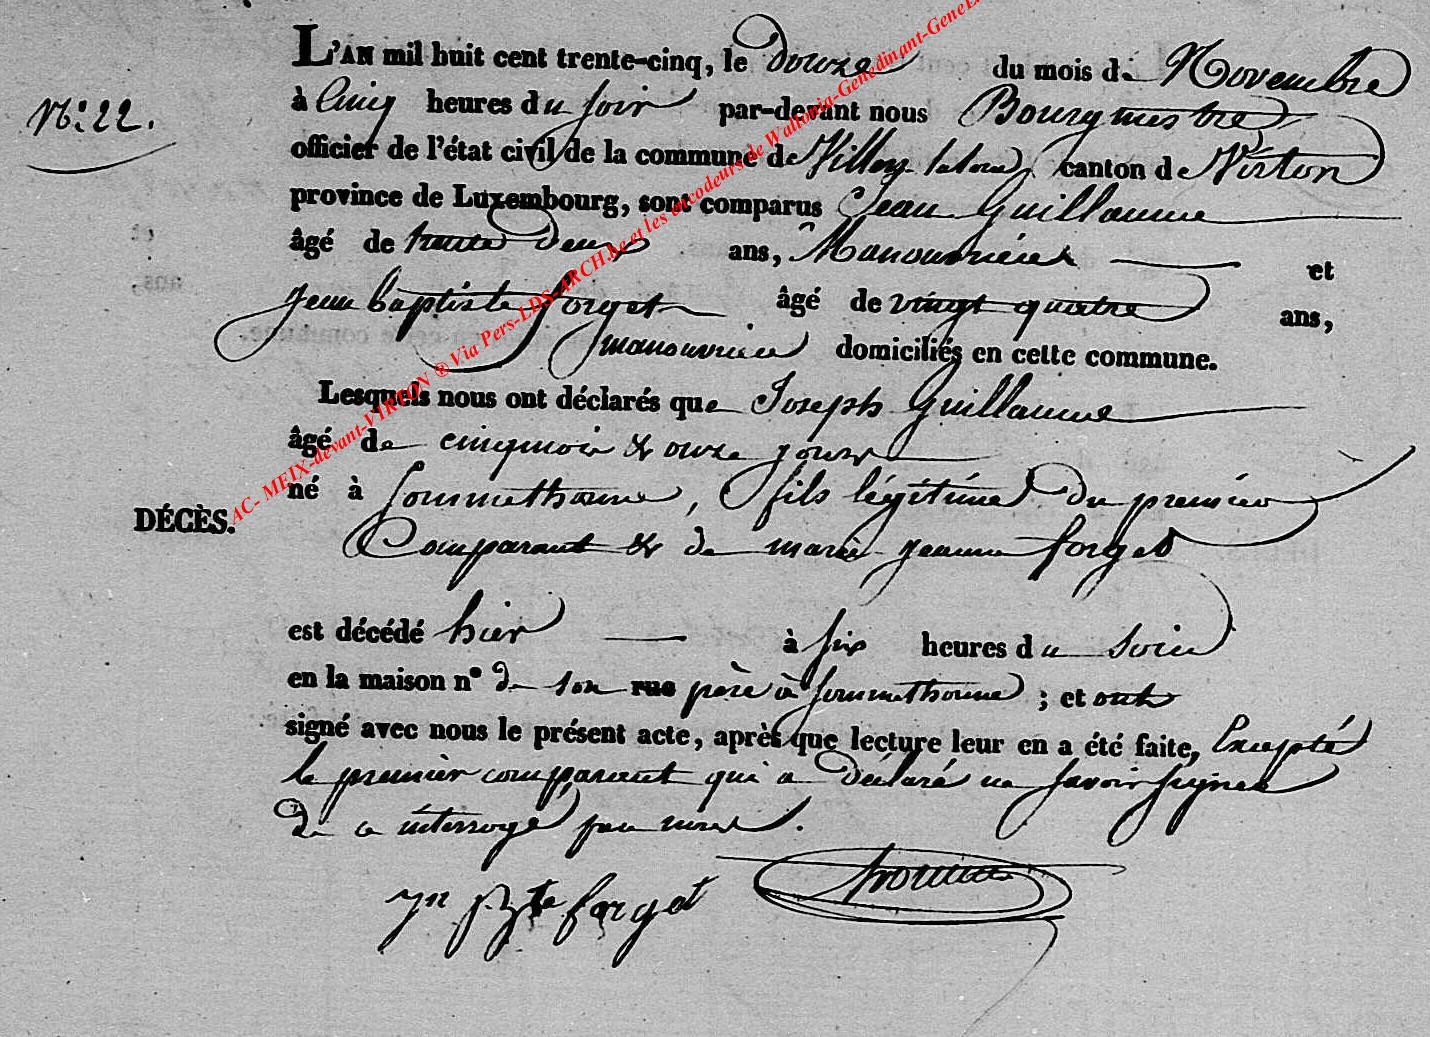 L'AN mil huit cent trente-cinq, le douze du mois de Novembre
N.º 22.
à Cinq heures du soir par-devant nous Bourgmestre
officier de l'état civil de la commune de Villers-laloue, canton de Virton
province de Luxembourg, sont comparus Jean Guillaume
âgé de trente deux ans, Manouvrier et
Jean baptiste forget âgé de vingt quatre ans,
manouvrier domiciliés en cette commune.
Lesquels nous ont déclarés que Joseph Guillaume
âgé de cinq mois & onze jours
né à Sommethonne, fils légitime du premier
DÉCÈS.
Comparant & de marie jeanne forget
est décédé hier à six heures du soir
en la maison nº de son rue père à Sommethonne ; et ont
signé avec nous le présent acte, après que lecture leur en a été faite, Excepté
le premier comparant qui a déclaré ne savoir signer
de ce interrogé par nous.
jn Bte forget
AC- MEIX-devant-VIRTON ® Via Pers-LDS-ARCH.be et les encodeurs de Wallonia-Genedinant-GeneL